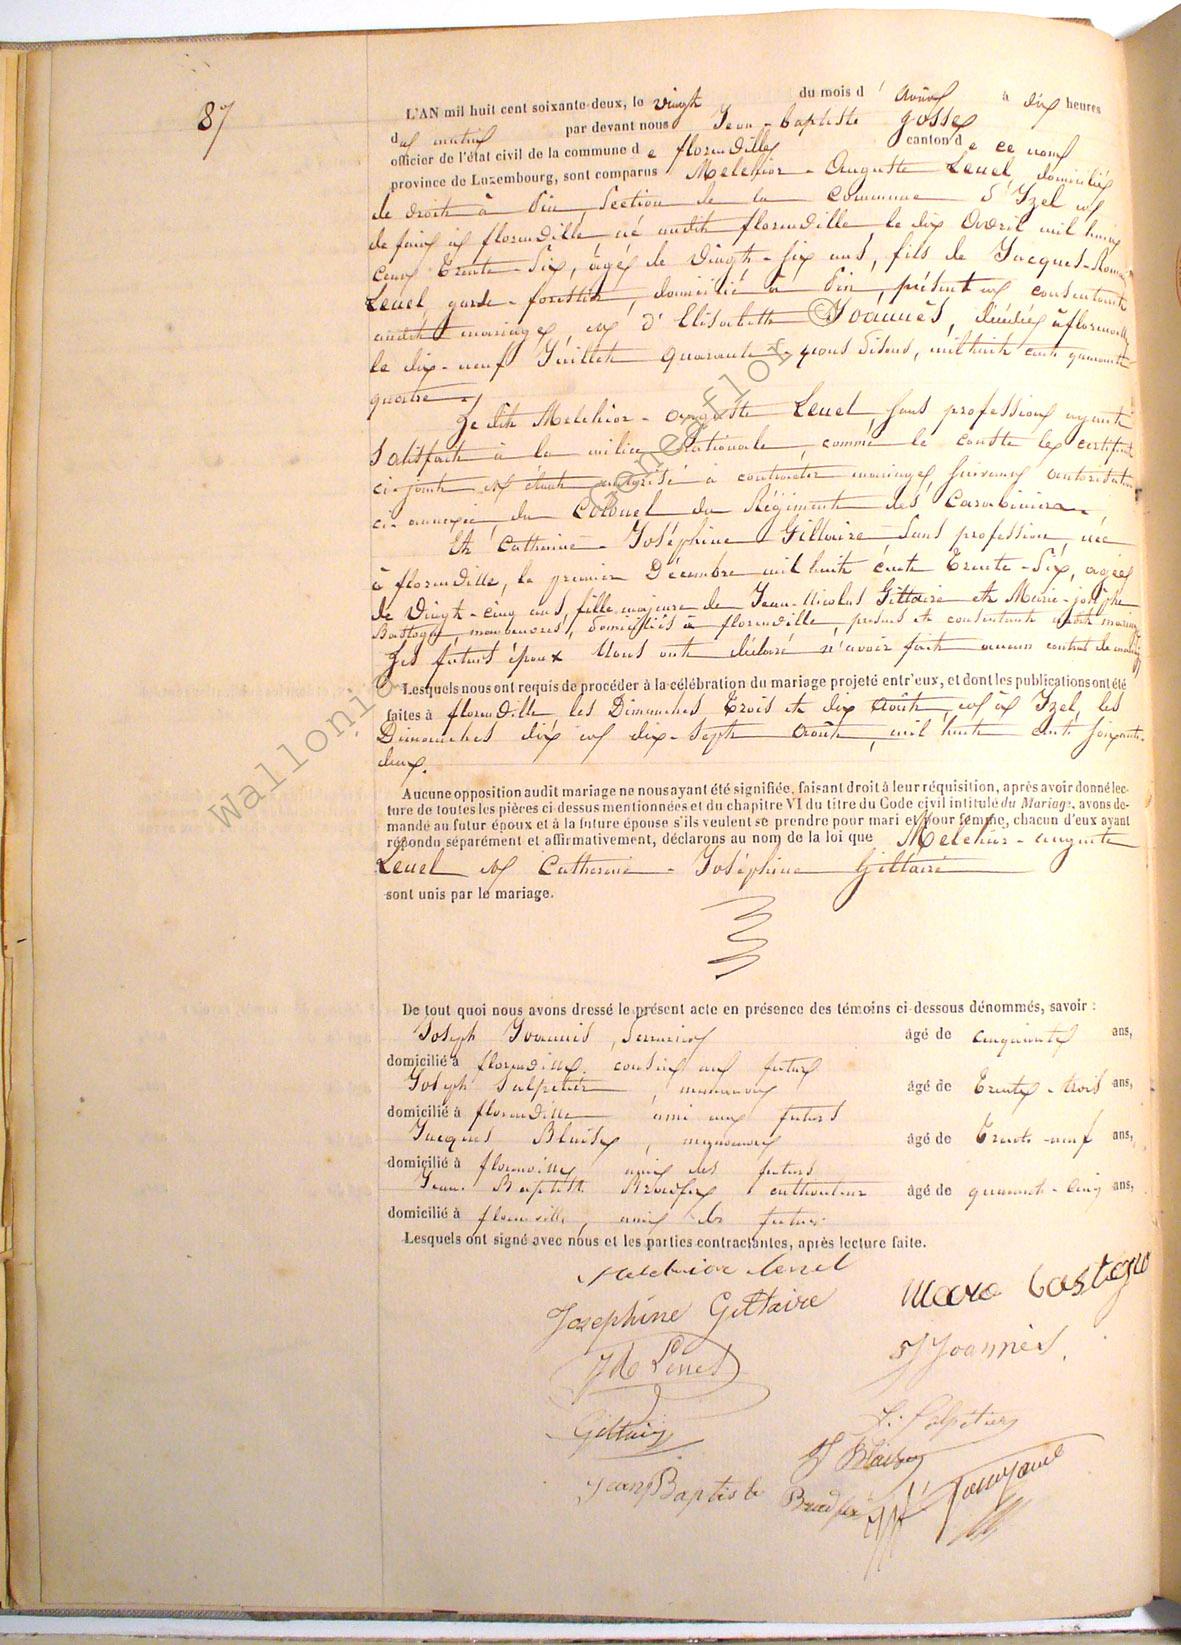 87
L'AN mil huit cent soixante-deux, le vingt du mois d'Août à dix heures
du matin par devant nous Jean-Baptiste Gosse
officier de l'état civil de la commune de florenville canton de ce nom
province de Luxembourg, sont comparus Melchior-Auguste Lenel, domicilié
de droit à Pin Section de la commune d'Izel et
de fait à florenville, né audit florenville le dix Avril mil huit
cent Trente-Six, âgé de Vingt-six ans, fils de Jacques-
Lenel garde-forestier, domicilié à Pin, présent et consentant
audit mariage, et d'Elisabeth Joannès, décédée à florenville
le dix-neuf Juillet quarante- nous disons, mil huit cent quarante
quatre.
Le dit Melchior-Auguste Lenel, sans profession ayant
Satisfait à la milice Nationale, comme le constate le certificat
ci-joint et étant autorisé à contracter mariage suivant autorisation
ci-annexée, du Colonel du Régiment des Carabiniers.
Et Catherine-Joséphine Gillaire Sans profession, née
à florenville, le premier Décembre mil huit cent Trente-Six, agée
de Vingt-cinq ans, fille majeure de Jean-Nicolas Gillaire et Marie-josèphe
Bastogne, domiciliés à florenville, présents et consentants audit mariage
Les futurs époux Nous ont déclaré n'avoir fait aucun contrat de mariage
Lesquels nous ont requis de procéder à la célébration du mariage projeté entr'eux, et dont les publications ont été
faites à florenville, les Dimanches Trois et dix Août, et à Izel, les
Dimanches dix et dix-sept Août, mil huit cent soixante-
deux.
Aucune opposition audit mariage ne nous ayant été signifiée, faisant droit à leur réquisition, après avoir donné lec-
ture de toutes les pièces ci-dessus mentionnées et du chapitre VI du titre du Code civil intitulé du Mariage, avons de-
mandé au futur époux et à la future épouse s'ils veulent se prendre pour mari et pour femme, chacun d'eux ayant
répondu séparément et affirmativement, déclarons au nom de la loi que Melchior-Auguste
Lenel et Catherine-Joséphine Gillaire
sont unis par le mariage.
De tout quoi nous avons dressé le présent acte en présence des témoins ci-dessous dénommés, savoir :
Joseph Joannès, Serrurier âgé de cinquante ans,
domicilié à florenville, cousin aux futurs
Joseph Salpétier, âgé de Trente-trois ans,
domicilié à florenville ami aux futurs
Jacques Blaise, âgé de Trente-neuf ans,
domicilié à florenville ami des futurs
Jean Baptiste cultivateur âgé de quarante-cinq ans,
domicilié à florenville, ami des futurs
Lesquels ont signé avec nous et les parties contractantes, après lecture faite.
Melchior Lenel
Josephine Gillaire
Lenel
J Joannès
Gillaire
J. Salpétier
J Blaise
Jean Baptiste
Wallonia
© Geneaflor